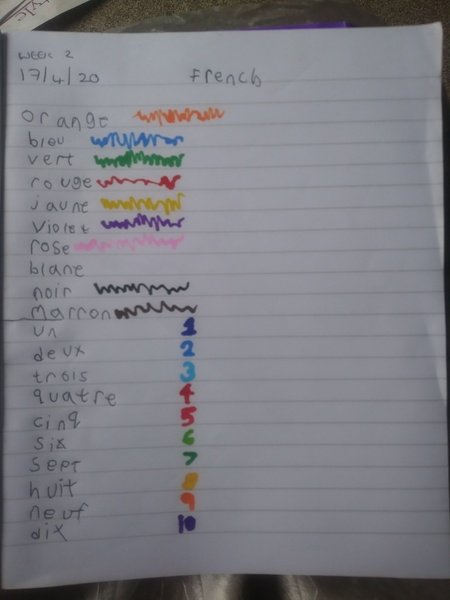 WEEK 2
17/4/20 French
orange
bleu
vert
rouge
jaune
violet
rose
blane
noir
marron
un 1
deux 2
trois 3
quatre 4
cinq 5
six 6
sept 7
huit 8
neuf 9
dix 10